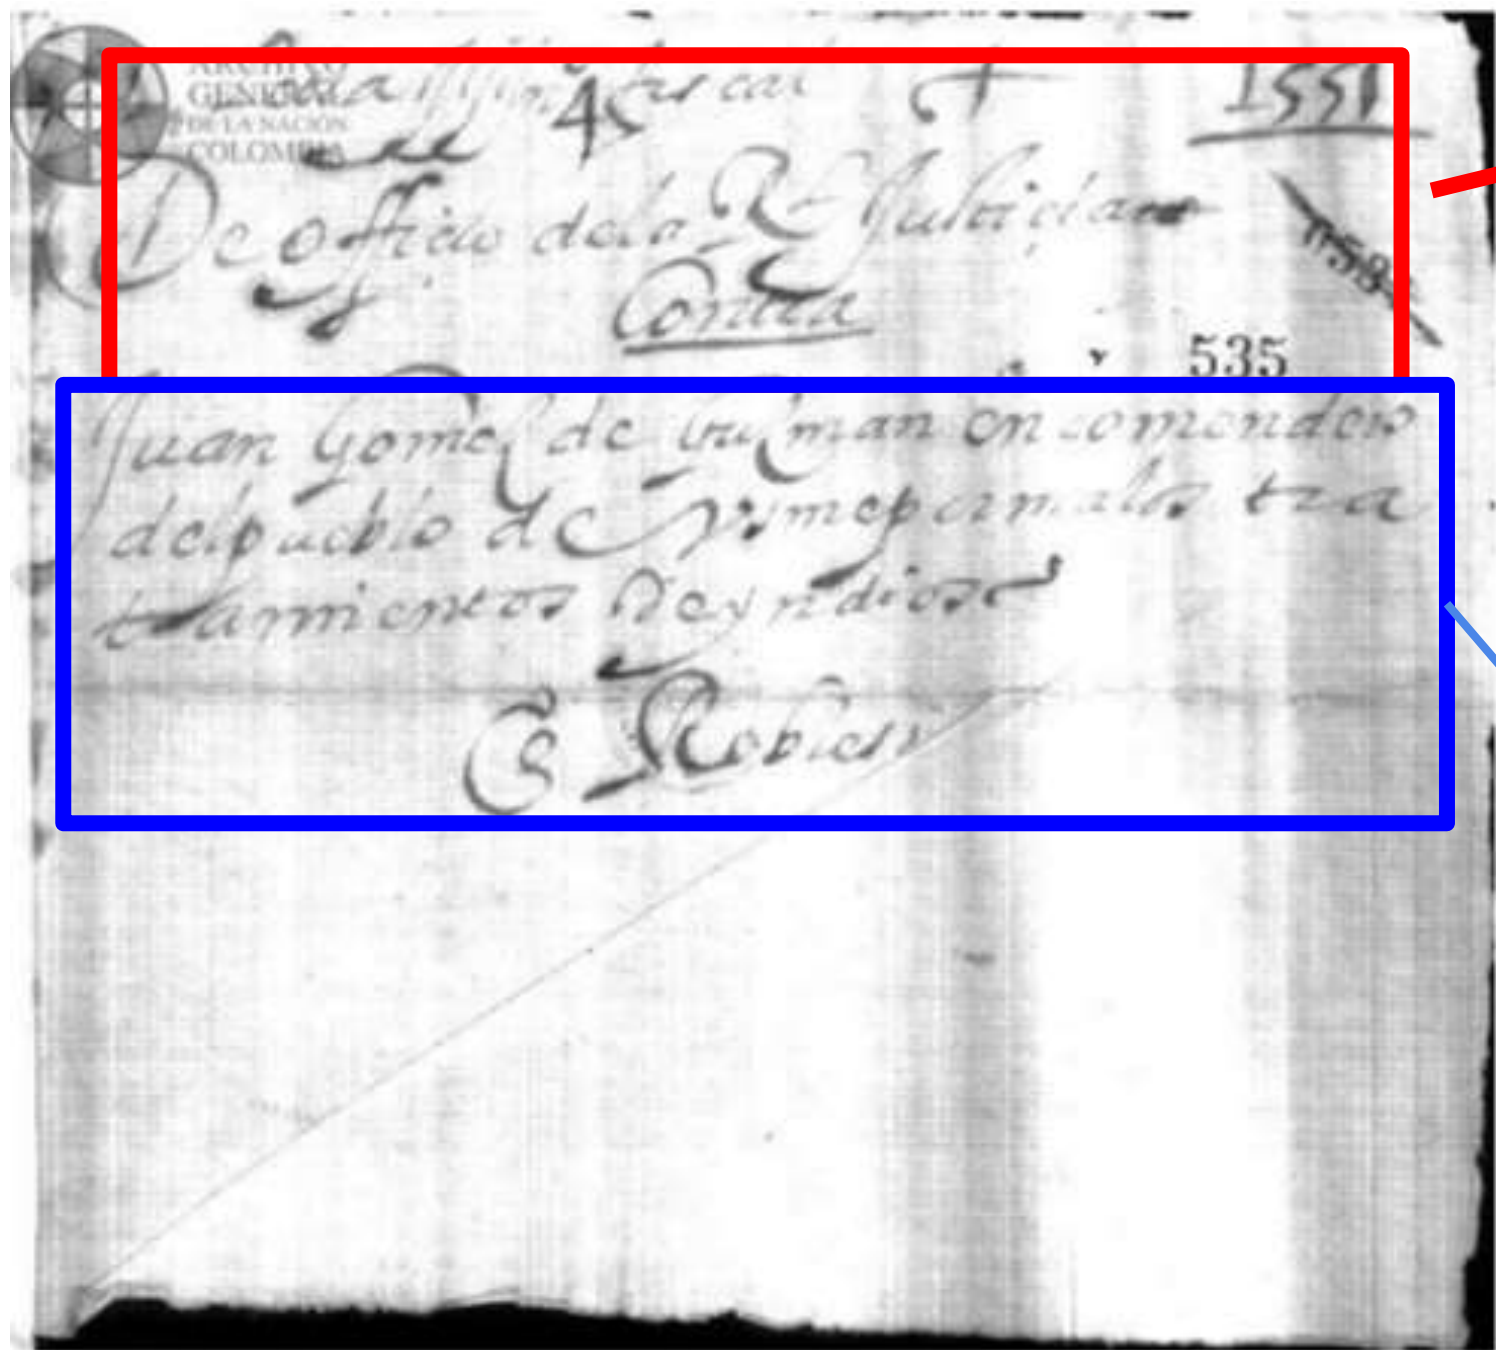 ARCHIVO
GENERAL
DE LA NACIÓN
COLOMBIA
fiscal
1551
45
De officio de la Rl Justicia
Contra
535
Juan Gomez de Guzman encomendero
del pueblo de Vsme por malos tra
tamientos de yndios
Robles